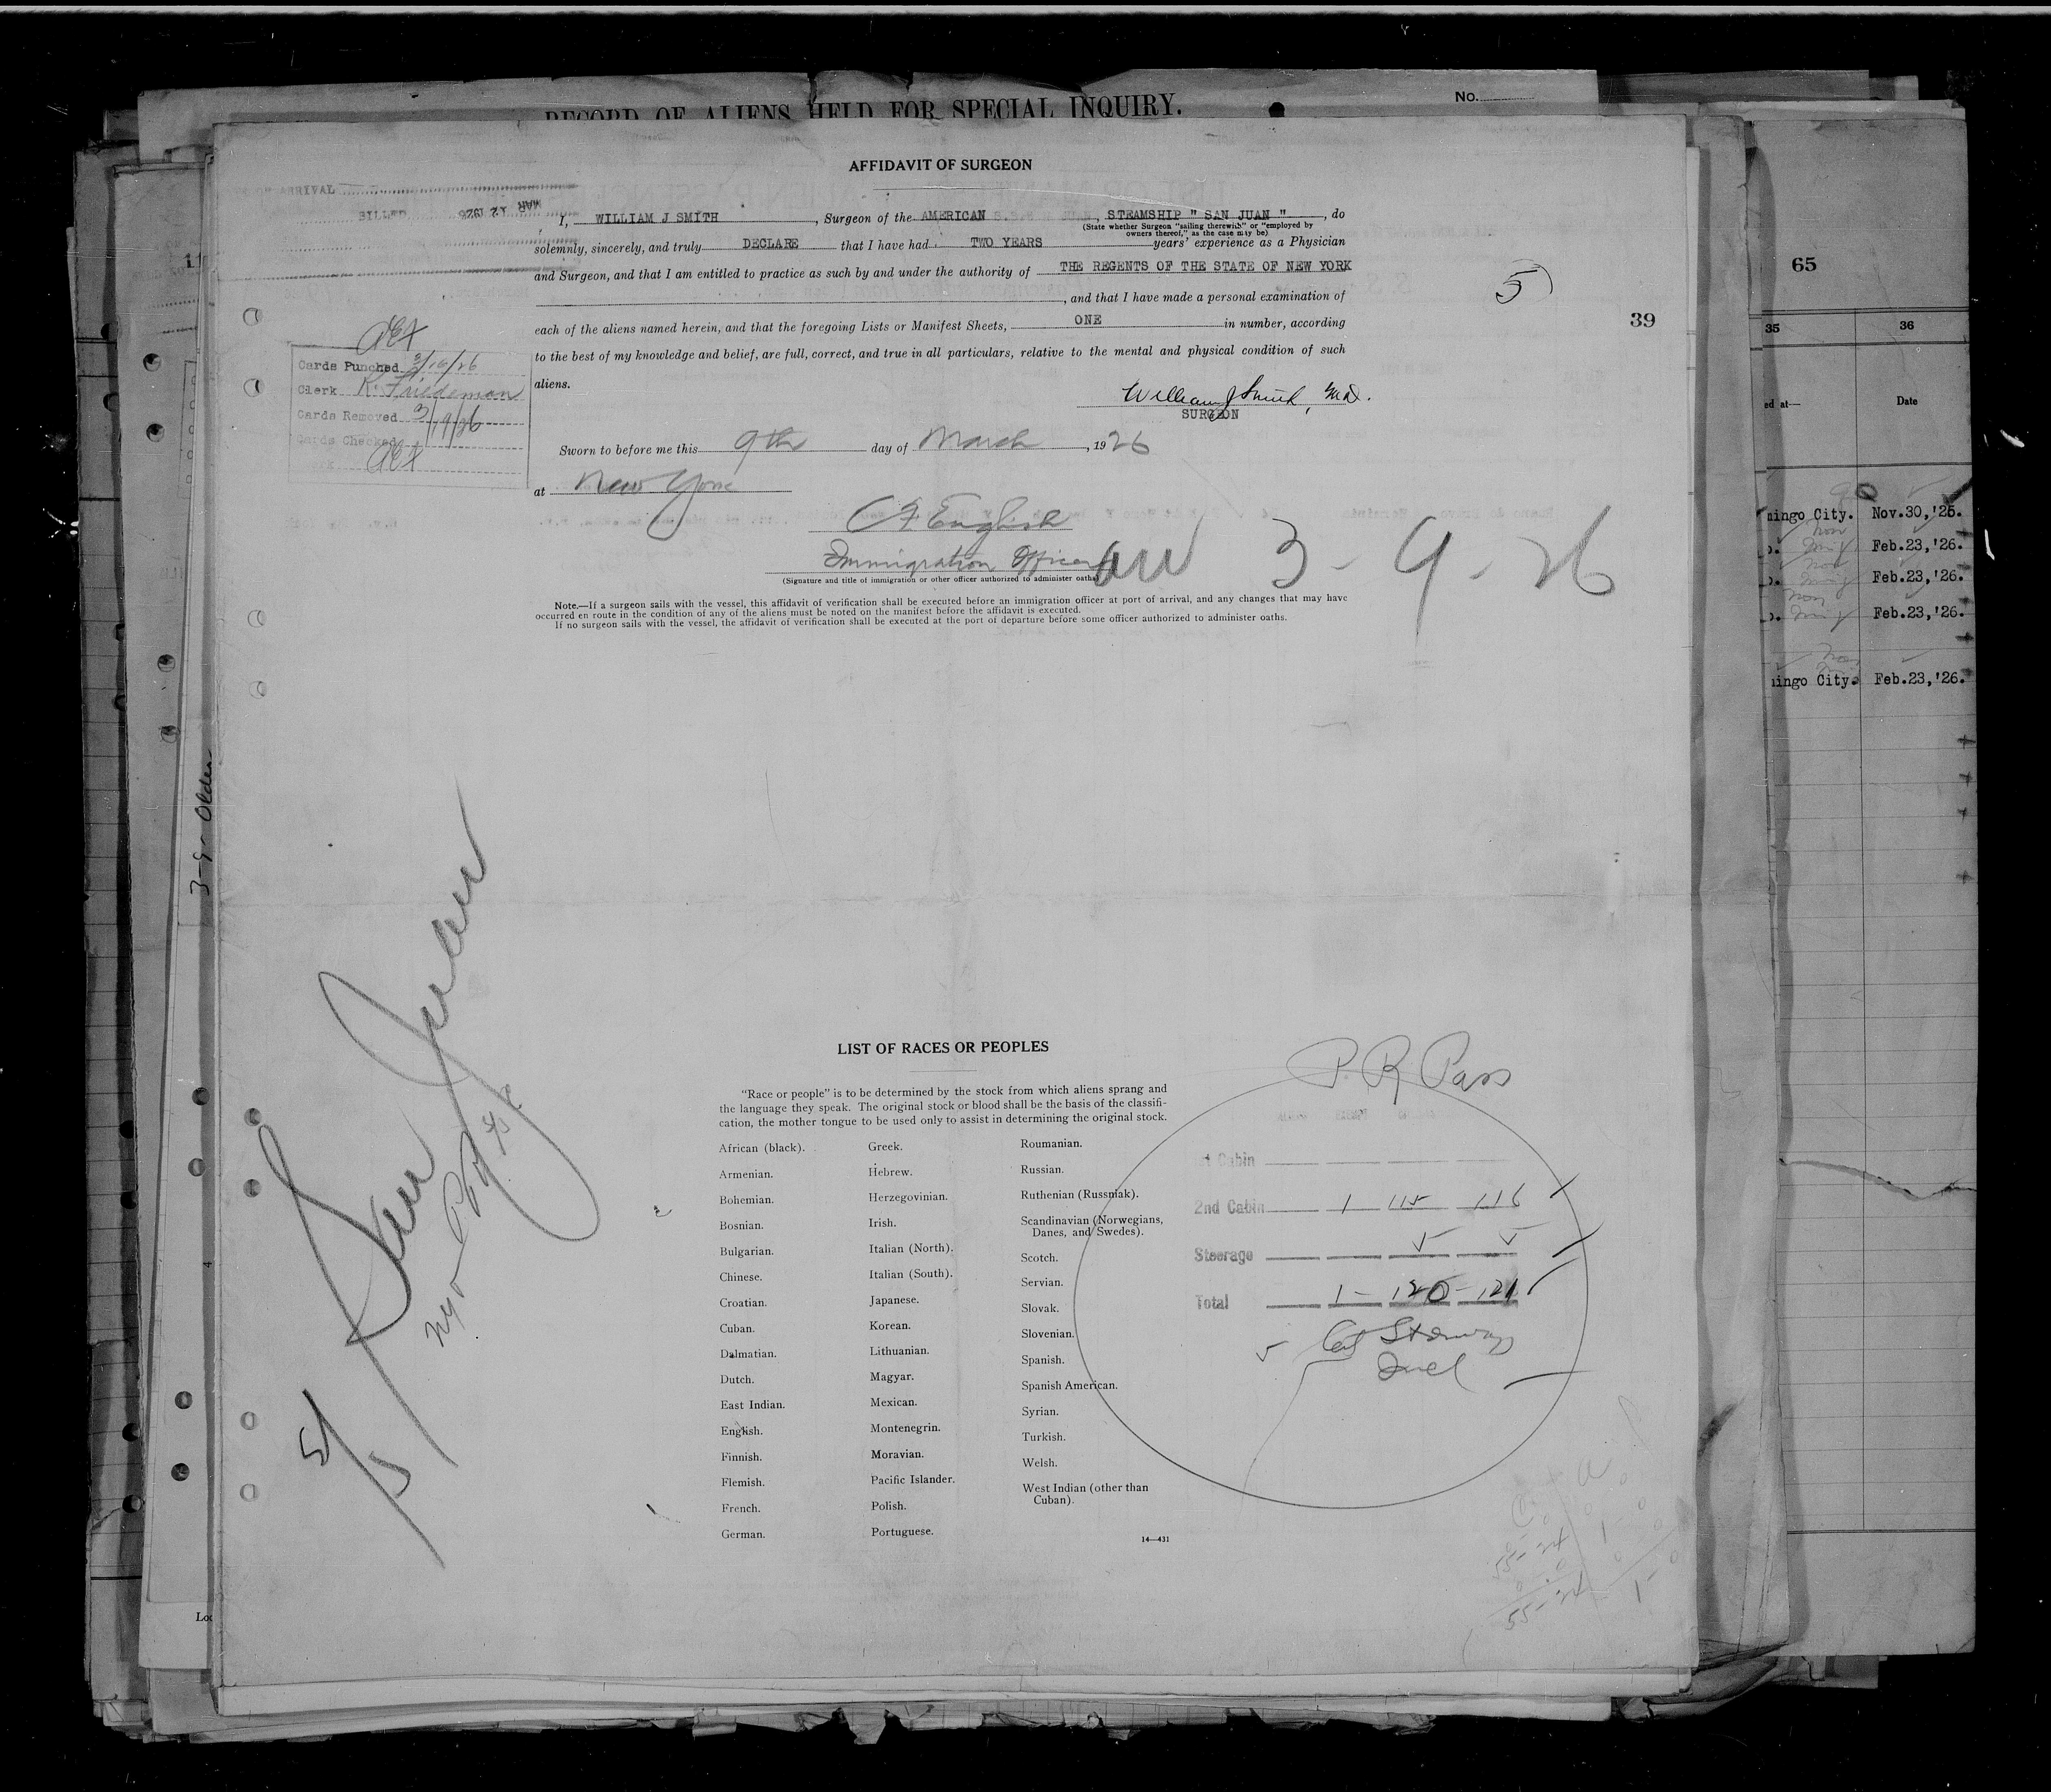 RECORD OF ALIENS HELD FOR SPECIAL INQUIRY.
No.
AFFIDAVIT OF SURGEON
ARRIVAL
MAR 12 1926
I, WILLIAM J SMITH, Surgeon of the AMERICAN, STEAMSHIP " SAN JUAN ", do
(State whether Surgeon "sailing therewith" or "employed by
owners thereof," as the case may be)
solemnly, sincerely, and truly DECLARE that I have had TWO YEARS years' experience as a Physician
and Surgeon, and that I am entitled to practice as such by and under the authority of THE REGENTS OF THE STATE OF NEW YORK
, and that I have made a personal examination of
each of the aliens named herein, and that the foregoing Lists or Manifest Sheets, ONE in number, according
to the best of my knowledge and belief, are full, correct, and true in all particulars, relative to the mental and physical condition of such
aliens.
5
39
Cards Punched 3/16/26
Clerk R. Friedeman
Cards Removed 3/19/26
Cards Checked
William J Smith, M.D.
SURGEON
Sworn to before me this 9th day of March, 1926
at New York
English
Immigration Officer
(Signature and title of immigration or other officer authorized to administer oaths)
3-9-26
Note.—If a surgeon sails with the vessel, this affidavit of verification shall be executed before an immigration officer at port of arrival, and any changes that may have
occurred en route in the condition of any of the aliens must be noted on the manifest before the affidavit is executed.
If no surgeon sails with the vessel, the affidavit of verification shall be executed at the port of departure before some officer authorized to administer oaths.
65
35
36
ed at—
Date
mingo City. Nov.30,'25.
Feb.23,'26.
Feb.23,'26.
Feb.23,'26.
mingo City. Feb.23,'26.
San Juan
LIST OF RACES OR PEOPLES
"Race or people" is to be determined by the stock from which aliens sprang and
the language they speak. The original stock or blood shall be the basis of the classifi-
cation, the mother tongue to be used only to assist in determining the original stock.
African (black).
Armenian.
Bohemian.
Bosnian.
Bulgarian.
Chinese.
Croatian.
Cuban.
Dalmatian.
Dutch.
East Indian.
English.
Finnish.
Flemish.
French.
German.
Greek.
Hebrew.
Herzegovinian.
Irish.
Italian (North).
Italian (South).
Japanese.
Korean.
Lithuanian.
Magyar.
Mexican.
Montenegrin.
Moravian.
Pacific Islander.
Polish.
Portuguese.
Roumanian.
Russian.
Ruthenian (Russniak).
Scandinavian (Norwegians,
Danes, and Swedes).
Scotch.
Servian.
Slovak.
Slovenian.
Spanish.
Spanish American.
Syrian.
Turkish.
Welsh.
West Indian (other than
Cuban).
14—431
P. R. Pass
Cabin
2nd Cabin 1 115 116
Steerage 5 5
Total 1 - 120 - 121
5
55-24
55-24
1-0